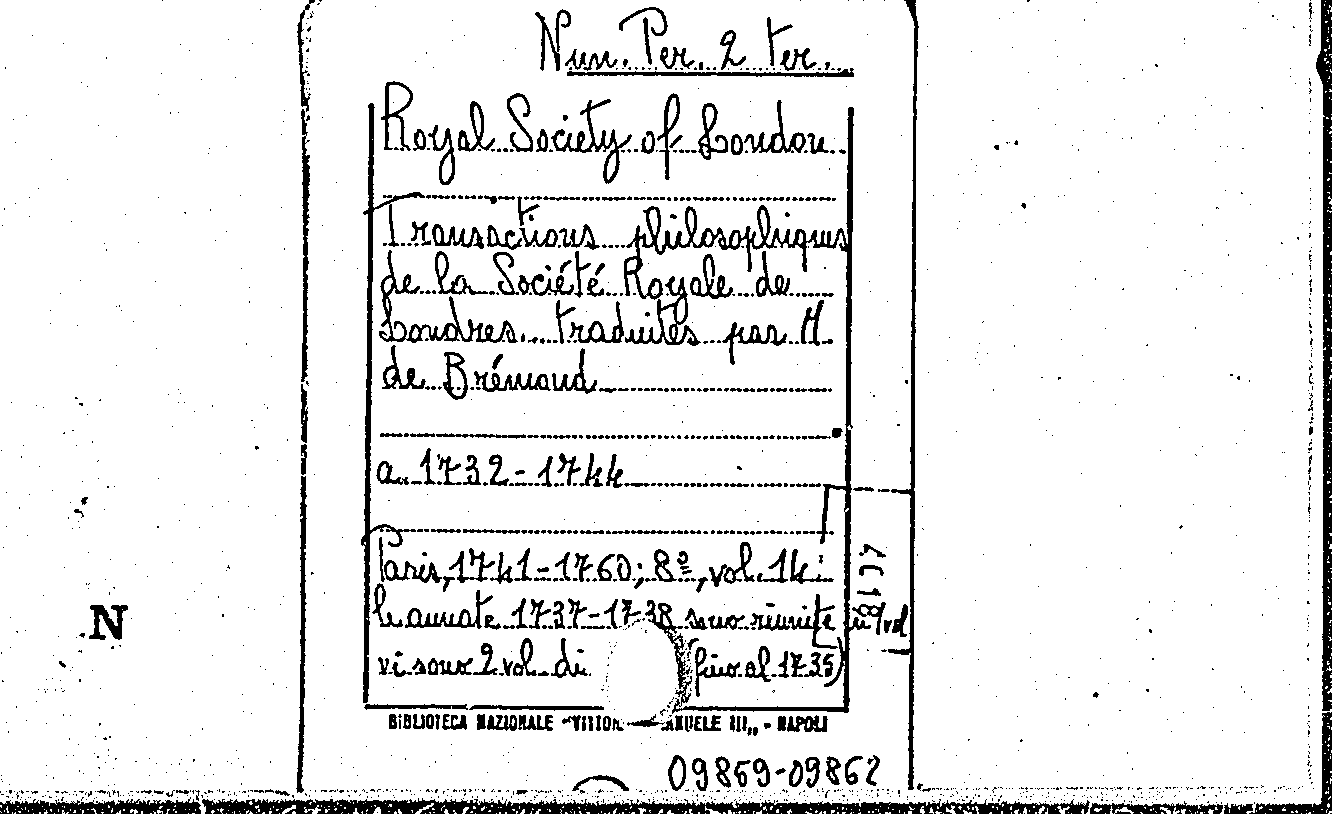 Nun. Per. 2 ter.
Royal Society of London
Transactions philosophiques
de la Société Royale de
Londres... traduites par M.
de Brémond
a. 1732-1744
Paris, 1741-1760; 8º, vol. 14:
le annate 1737-1738 sono riunite in 1 vol
vi sono 2 vol. di fino al 1735)
BIBLIOTECA NAZIONALE "VITTOR ANUELE III„ - NAPOLI
09859-09862
N